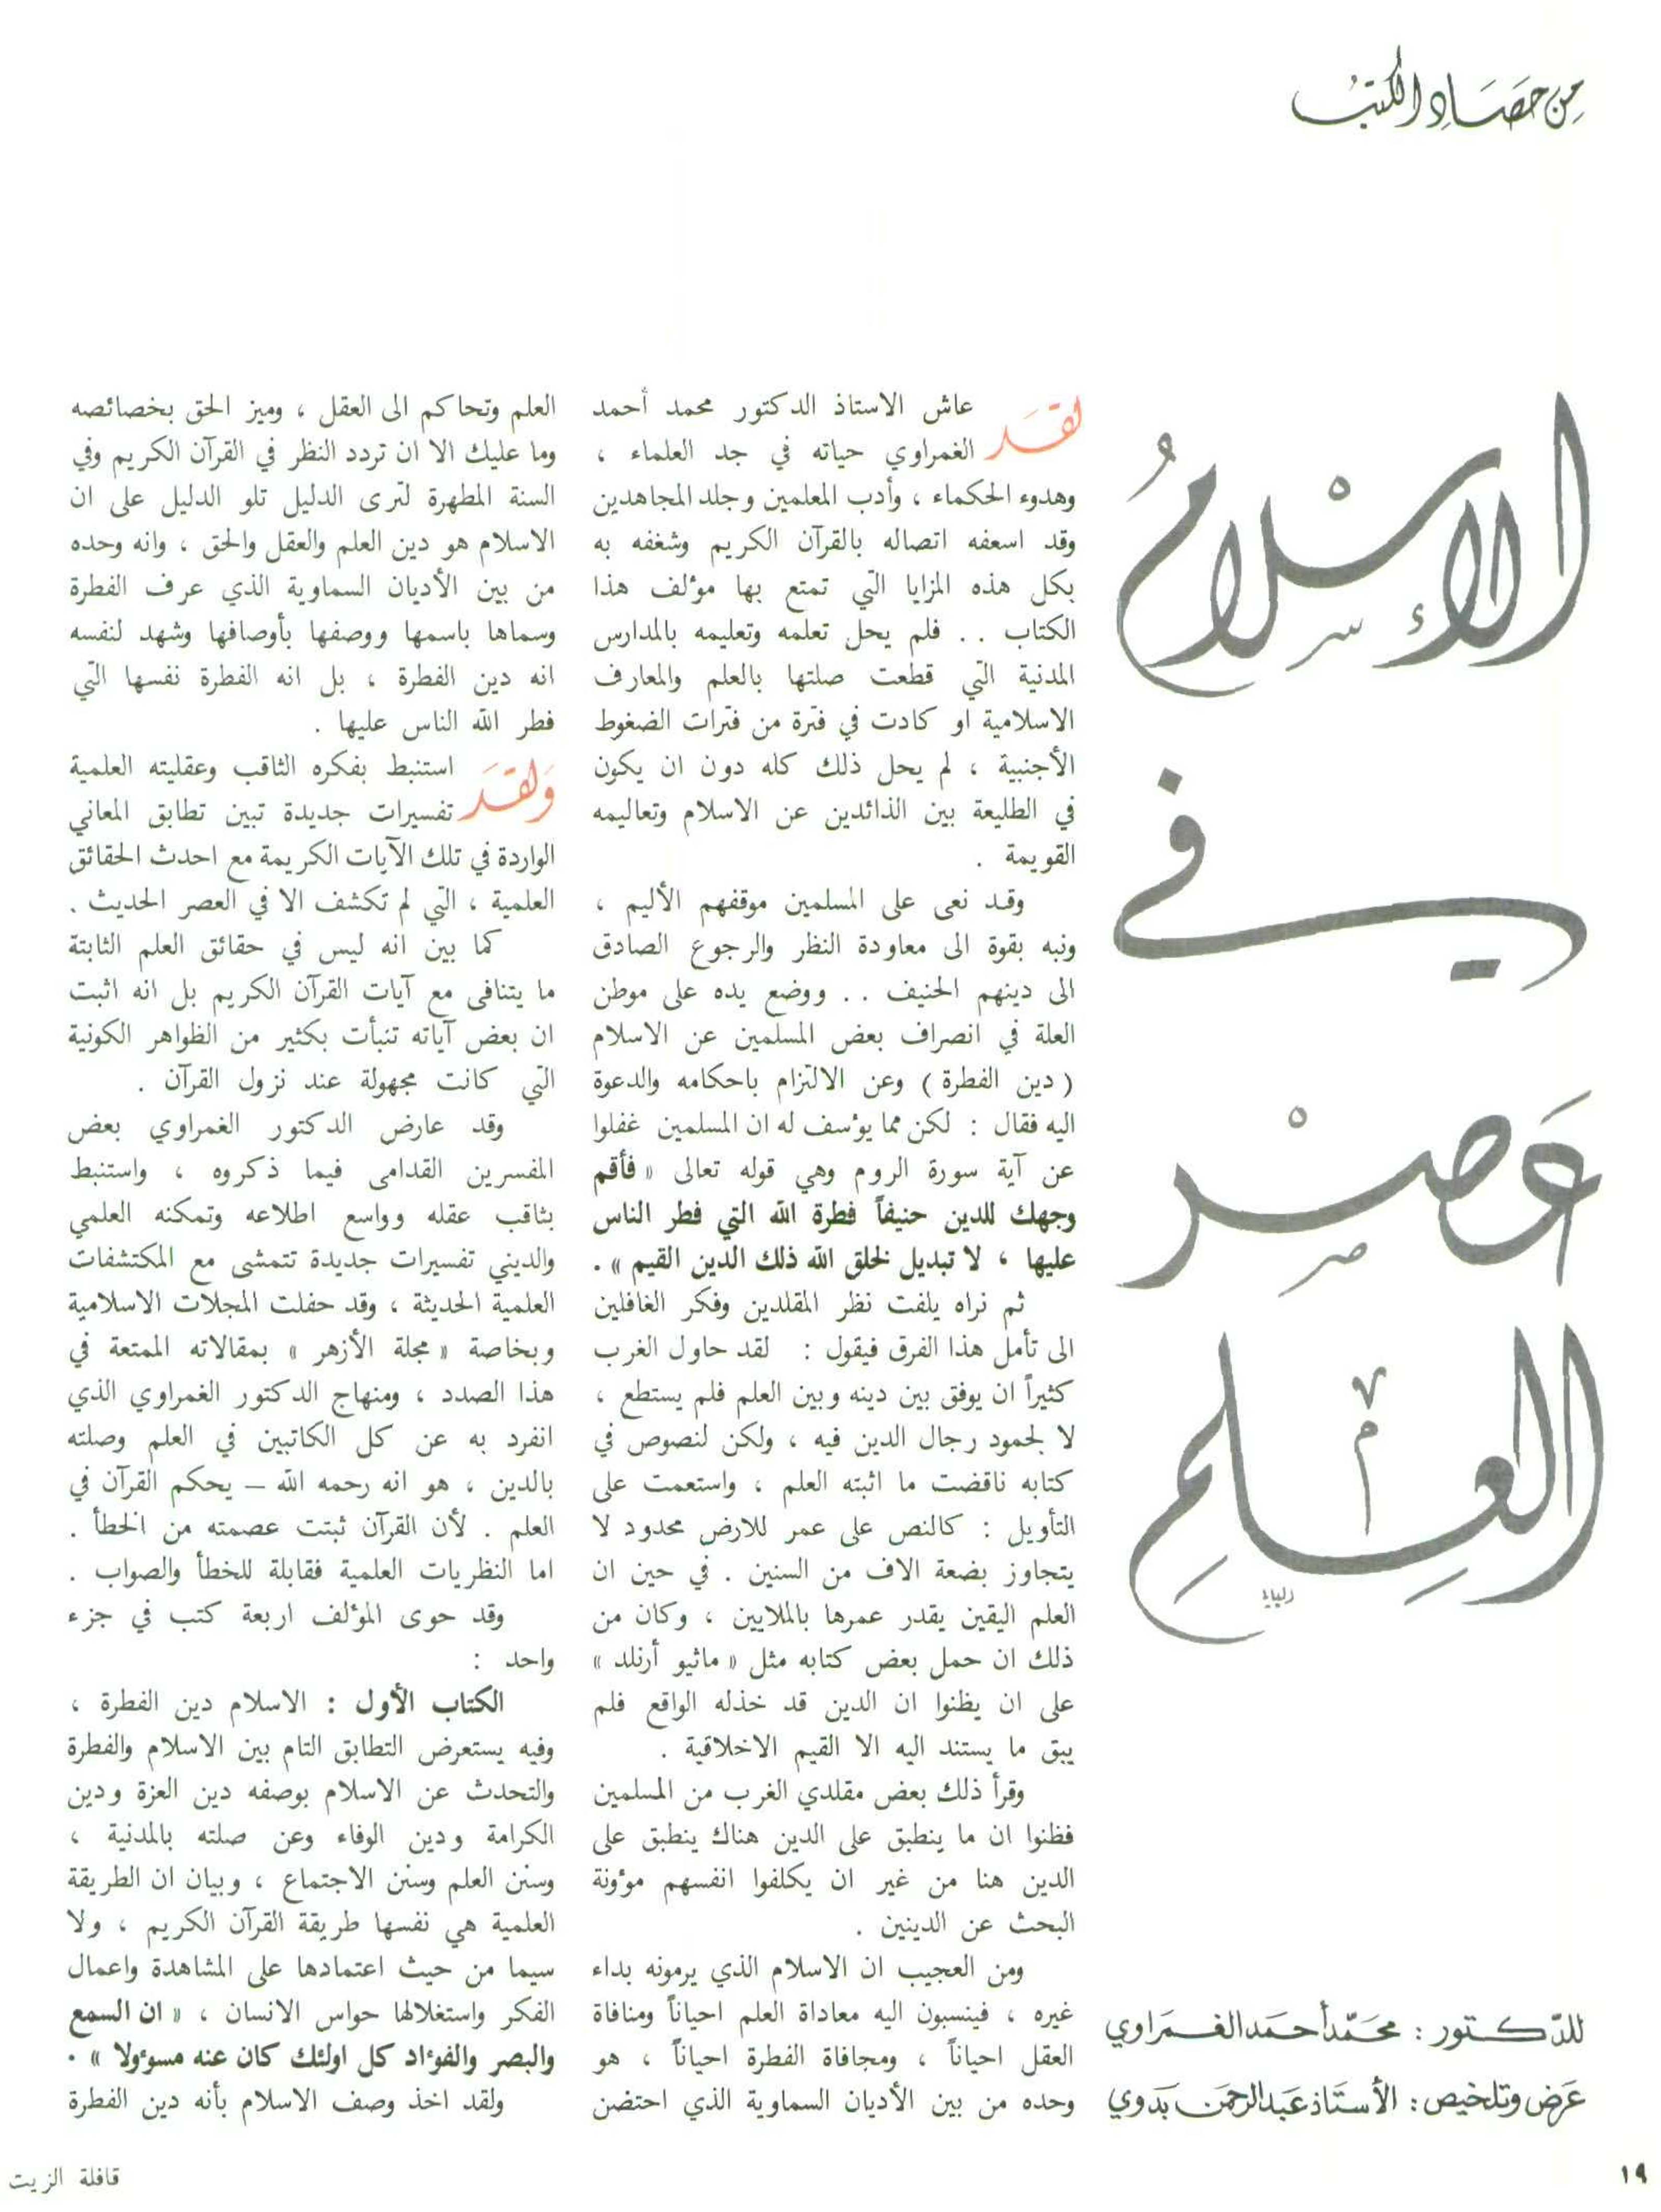 من حصاد الكتب
الإسلام
في
عصر
العلم
للدكتور : محمد أحمد الغمراوي
عرض وتلخيص : الأستاذ عبد الرحمن بدوي
لقد عاش الاستاذ الدكتور محمد أحمد
الغمراوي حياته في جد العلماء ،
وهدوء الحكماء ، وأدب المعلمين وجلد المجاهدين
وقد اسعفه اتصاله بالقرآن الكريم وشغفه به
بكل هذه المزايا التي تمتع بها مؤلف هذا
الكتاب . . فلم يحل تعلمه وتعليمه بالمدارس
المدنية التي قطعت صلتها بالعلم والمعارف
الاسلامية او كادت في فترة من فترات الضغوط
الأجنبية ، لم يحل ذلك كله دون ان يكون
في الطليعة بين الذائدين عن الاسلام وتعاليمه
القويمة .
وقد نعى على المسلمين موقفهم الأليم ،
ونبه بقوة الى معاودة النظر والرجوع الصادق
الى دينهم الحنيف . . ووضع يده على موطن
العلة في انصراف بعض المسلمين عن الاسلام
( دين الفطرة ) وعن الالتزام باحكامه والدعوة
اليه فقال : لكن مما يؤسف له ان المسلمين غفلوا
عن آية سورة الروم وهي قوله تعالى « فأقم
وجهك للدين حنيفاً فطرة الله التي فطر الناس
عليها ، لا تبديل لخلق الله ذلك الدين القيم » .
ثم نراه يلفت نظر المقلدين وفكر الغافلين
الى تأمل هذا الفرق فيقول : لقد حاول الغرب
كثيراً ان يوفق بين دينه وبين العلم فلم يستطع ،
لا لجمود رجال الدين فيه ، ولكن لنصوص في
كتابه ناقضت ما اثبته العلم ، واستعمت على
التأويل : كالنص على عمر للارض محدود لا
يتجاوز بضعة الاف من السنين . في حين ان
العلم اليقين يقدر عمرها بالملايين ، وكان من
ذلك ان حمل بعض كتابه مثل « ماثيو أرنلد »
على ان يظنوا ان الدين قد خذله الواقع فلم
يبق ما يستند اليه الا القيم الاخلاقية .
وقرأ ذلك بعض مقلدي الغرب من المسلمين
فظنوا ان ما ينطبق على الدين هناك ينطبق على
الدين هنا من غير ان يكلفوا انفسهم مؤونة
البحث عن الدينين .
ومن العجيب ان الاسلام الذي يرمونه بداء
غيره ، فينسبون اليه معاداة العلم احياناً ومنافاة
العقل احياناً ، ومجافاة الفطرة احياناً ، هو
وحده من بين الأديان السماوية الذي احتضن
العلم وتحاكم الى العقل ، وميز الحق بخصائصه
وما عليك الا ان تردد النظر في القرآن الكريم وفي
السنة المطهرة لترى الدليل تلو الدليل على ان
الاسلام هو دين العلم والعقل والحق ، وانه وحده
من بين الأديان السماوية الذي عرف الفطرة
وسماها باسمها ووصفها بأوصافها وشهد لنفسه
انه دين الفطرة ، بل انه الفطرة نفسها التي
فطر الله الناس عليها .
ولقد استنبط بفكره الثاقب وعقليته العلمية
تفسيرات جديدة تبين تطابق المعاني
الواردة في تلك الآيات الكريمة مع احدث الحقائق
العلمية ، التي لم تكشف الا في العصر الحديث .
كما بين انه ليس في حقائق العلم الثابتة
ما يتنافى مع آيات القرآن الكريم بل انه اثبت
ان بعض آياته تنبأت بكثير من الظواهر الكونية
التي كانت مجهولة عند نزول القرآن .
وقد عارض الدكتور الغمراوي بعض
المفسرين القدامى فيما ذكروه ، واستنبط
بثاقب عقله وواسع اطلاعه وتمكنه العلمي
والديني تفسيرات جديدة تتمشى مع المكتشفات
العلمية الحديثة ، وقد حفلت المجلات الاسلامية
وبخاصة « مجلة الأزهر » بمقالاته الممتعة في
هذا الصدد ، ومنهاج الدكتور الغمراوي الذي
انفرد به عن كل الكاتبين في العلم وصلته
بالدين ، هو انه رحمه الله – يحكم القرآن في
العلم . لأن القرآن ثبتت عصمته من الخطأ .
اما النظريات العلمية فقابلة للخطأ والصواب .
وقد حوى المؤلف اربعة كتب في جزء
واحد :
الكتاب الأول : الاسلام دين الفطرة ،
وفيه يستعرض التطابق التام بين الاسلام والفطرة
والتحدث عن الاسلام بوصفه دين العزة ودين
الكرامة ودين الوفاء وعن صلته بالمدنية ،
وسنن العلم وسنن الاجتماع ، وبيان ان الطريقة
العلمية هي نفسها طريقة القرآن الكريم ، ولا
سيما من حيث اعتمادها على المشاهدة واعمال
الفكر واستغلالها حواس الانسان ، « ان السمع
والبصر والفؤاد كل اولئك كان عنه مسؤولا » .
ولقد اخذ وصف الاسلام بأنه دين الفطرة
١٩
قافلة الزيت